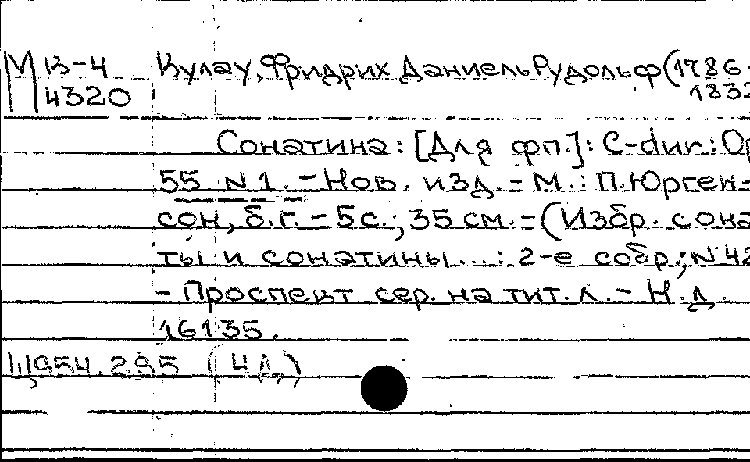 М В-4 Кулау, Фридрих Даниель Рудольф (1786-
4320 1832
Сонатина: [Для фп.]: C-dur: Op
55 N 1. - Нов. изд. - М.: П. Юрген-
сон, б.г. - 5 с.; 35 см. - (Избр. сона
ты и сонатины...: 2-е собр.; N 42
- Проспект сер. на тит. л. - Н.д.
16135.
954.295 (4